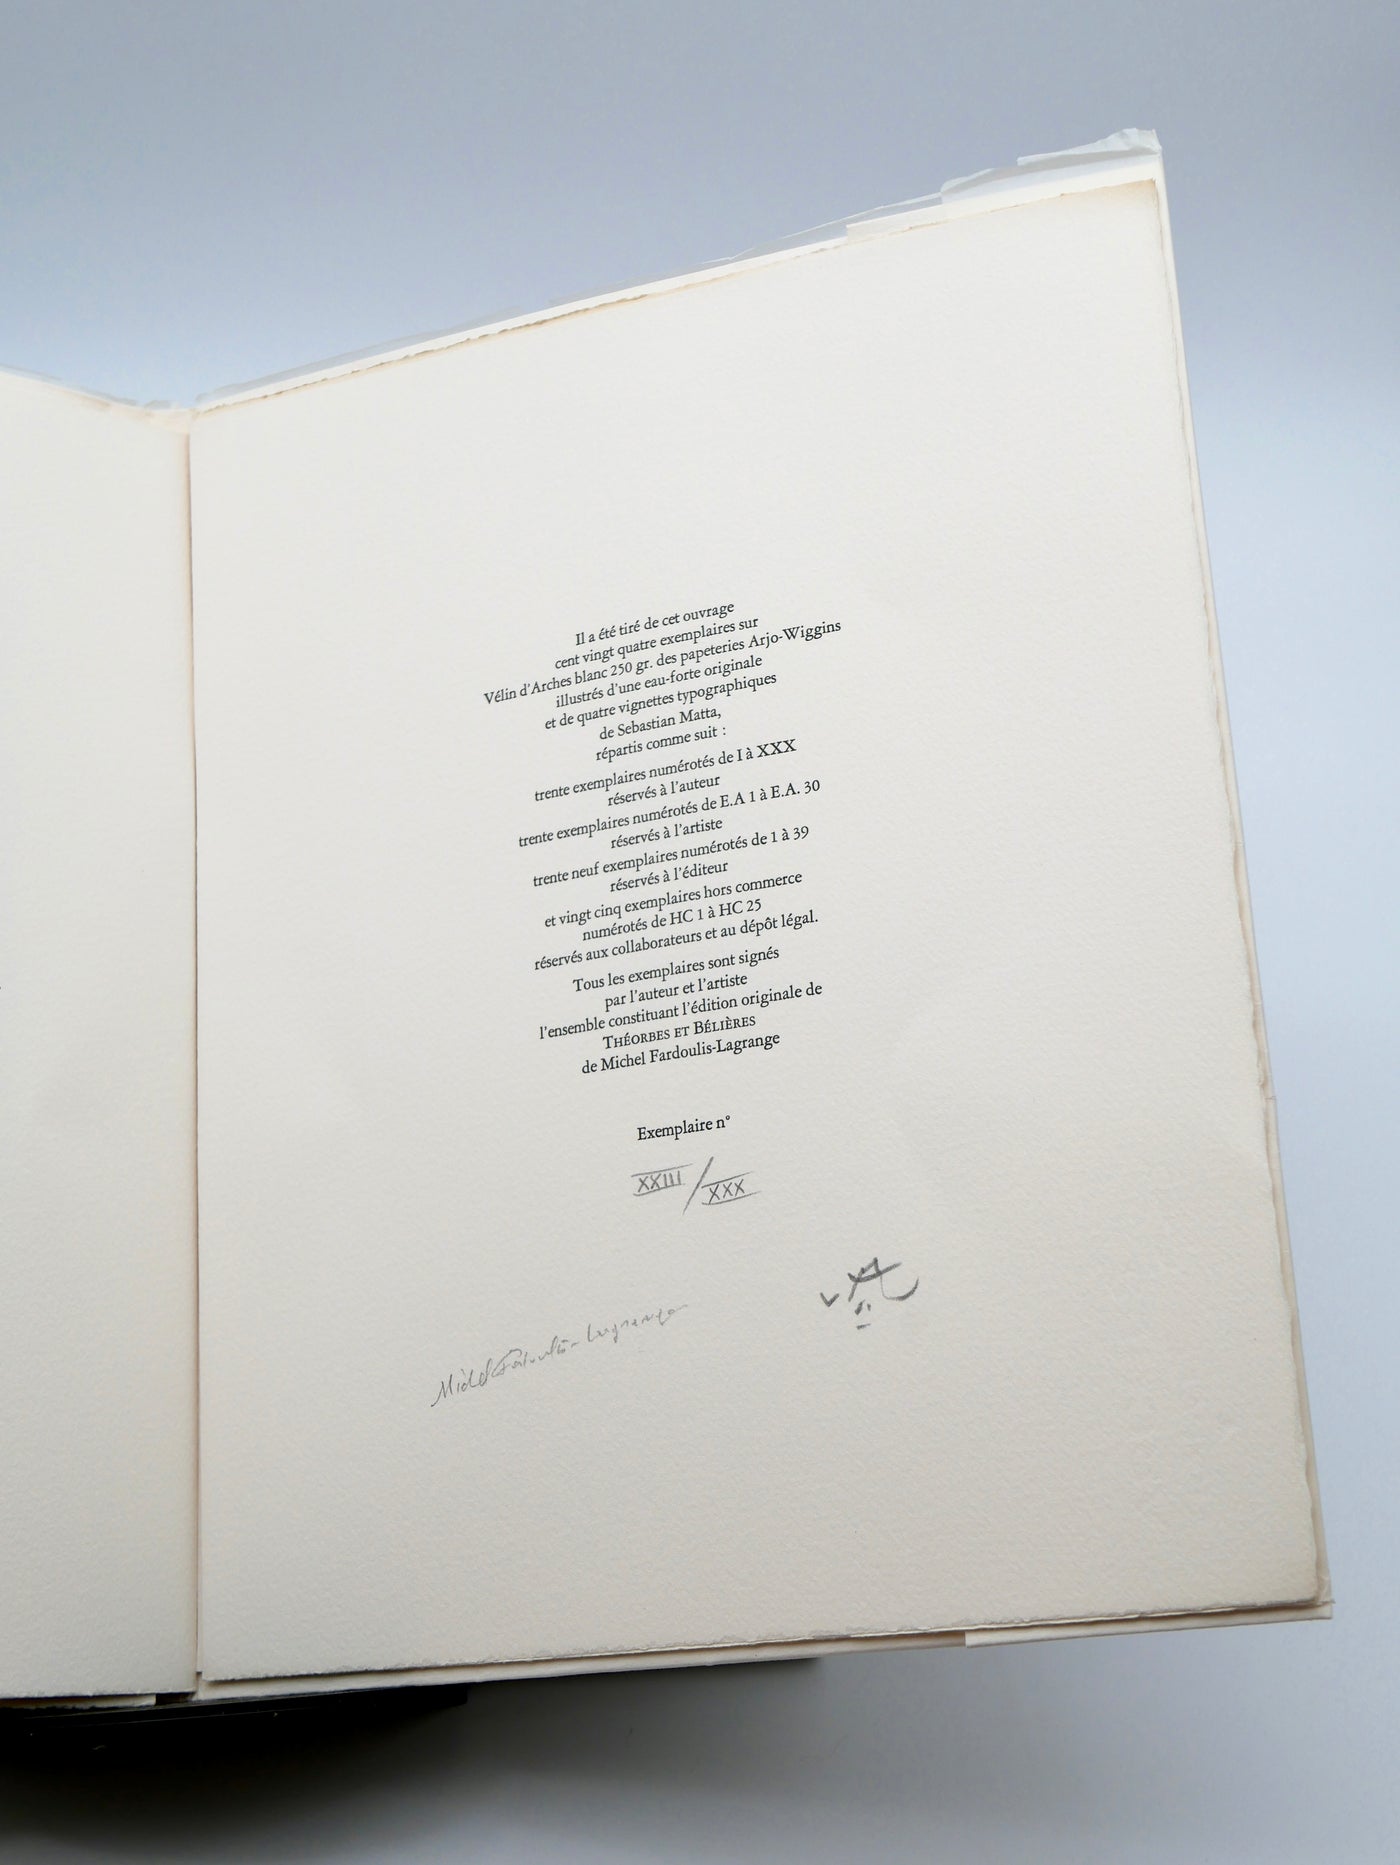 Il a été tiré de cet ouvrage
cent vingt quatre exemplaires sur
Vélin d'Arches blanc 250 gr. des papeteries Arjo-Wiggins
illustrés d'une eau-forte originale
et de quatre vignettes typographiques
de Sebastian Matta,
répartis comme suit :
trente exemplaires numérotés de I à XXX
réservés à l'auteur
trente exemplaires numérotés de E.A 1 à E.A. 30
réservés à l'artiste
trente neuf exemplaires numérotés de 1 à 39
réservés à l'éditeur
et vingt cinq exemplaires hors commerce
numérotés de HC 1 à HC 25
réservés aux collaborateurs et au dépôt légal.
Tous les exemplaires sont signés
par l'auteur et l'artiste
l'ensemble constituant l'édition originale de
THÉORBES ET BÉLIÈRES
de Michel Fardoulis-Lagrange
Exemplaire n°
XXIII/XXX
Michel Fardoulis-Lagrange